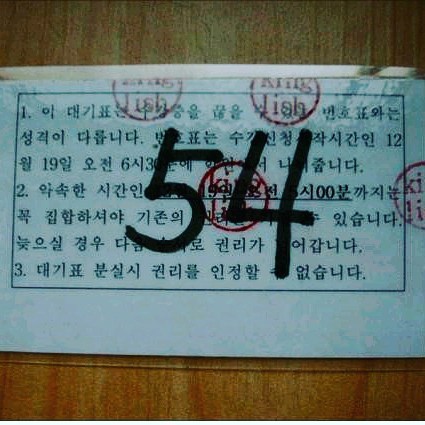 king
lish
king
lish
1. 이 대기표는 수강증을 끊을 수 있는 번호표와는
성격이 다릅니다. 번호표는 수강신청 시작시간인 12
월 19일 오전 6시30분에 나눠줍니다.
king
lish
2. 약속한 시간인 19일 오전 5시00분까지는
king
lish
꼭 집합하셔야 기존의 수 있습니다.
늦으실 경우 다음 권리가 넘어갑니다.
3. 대기표 분실시 권리를 인정할 수 없습니다.
54